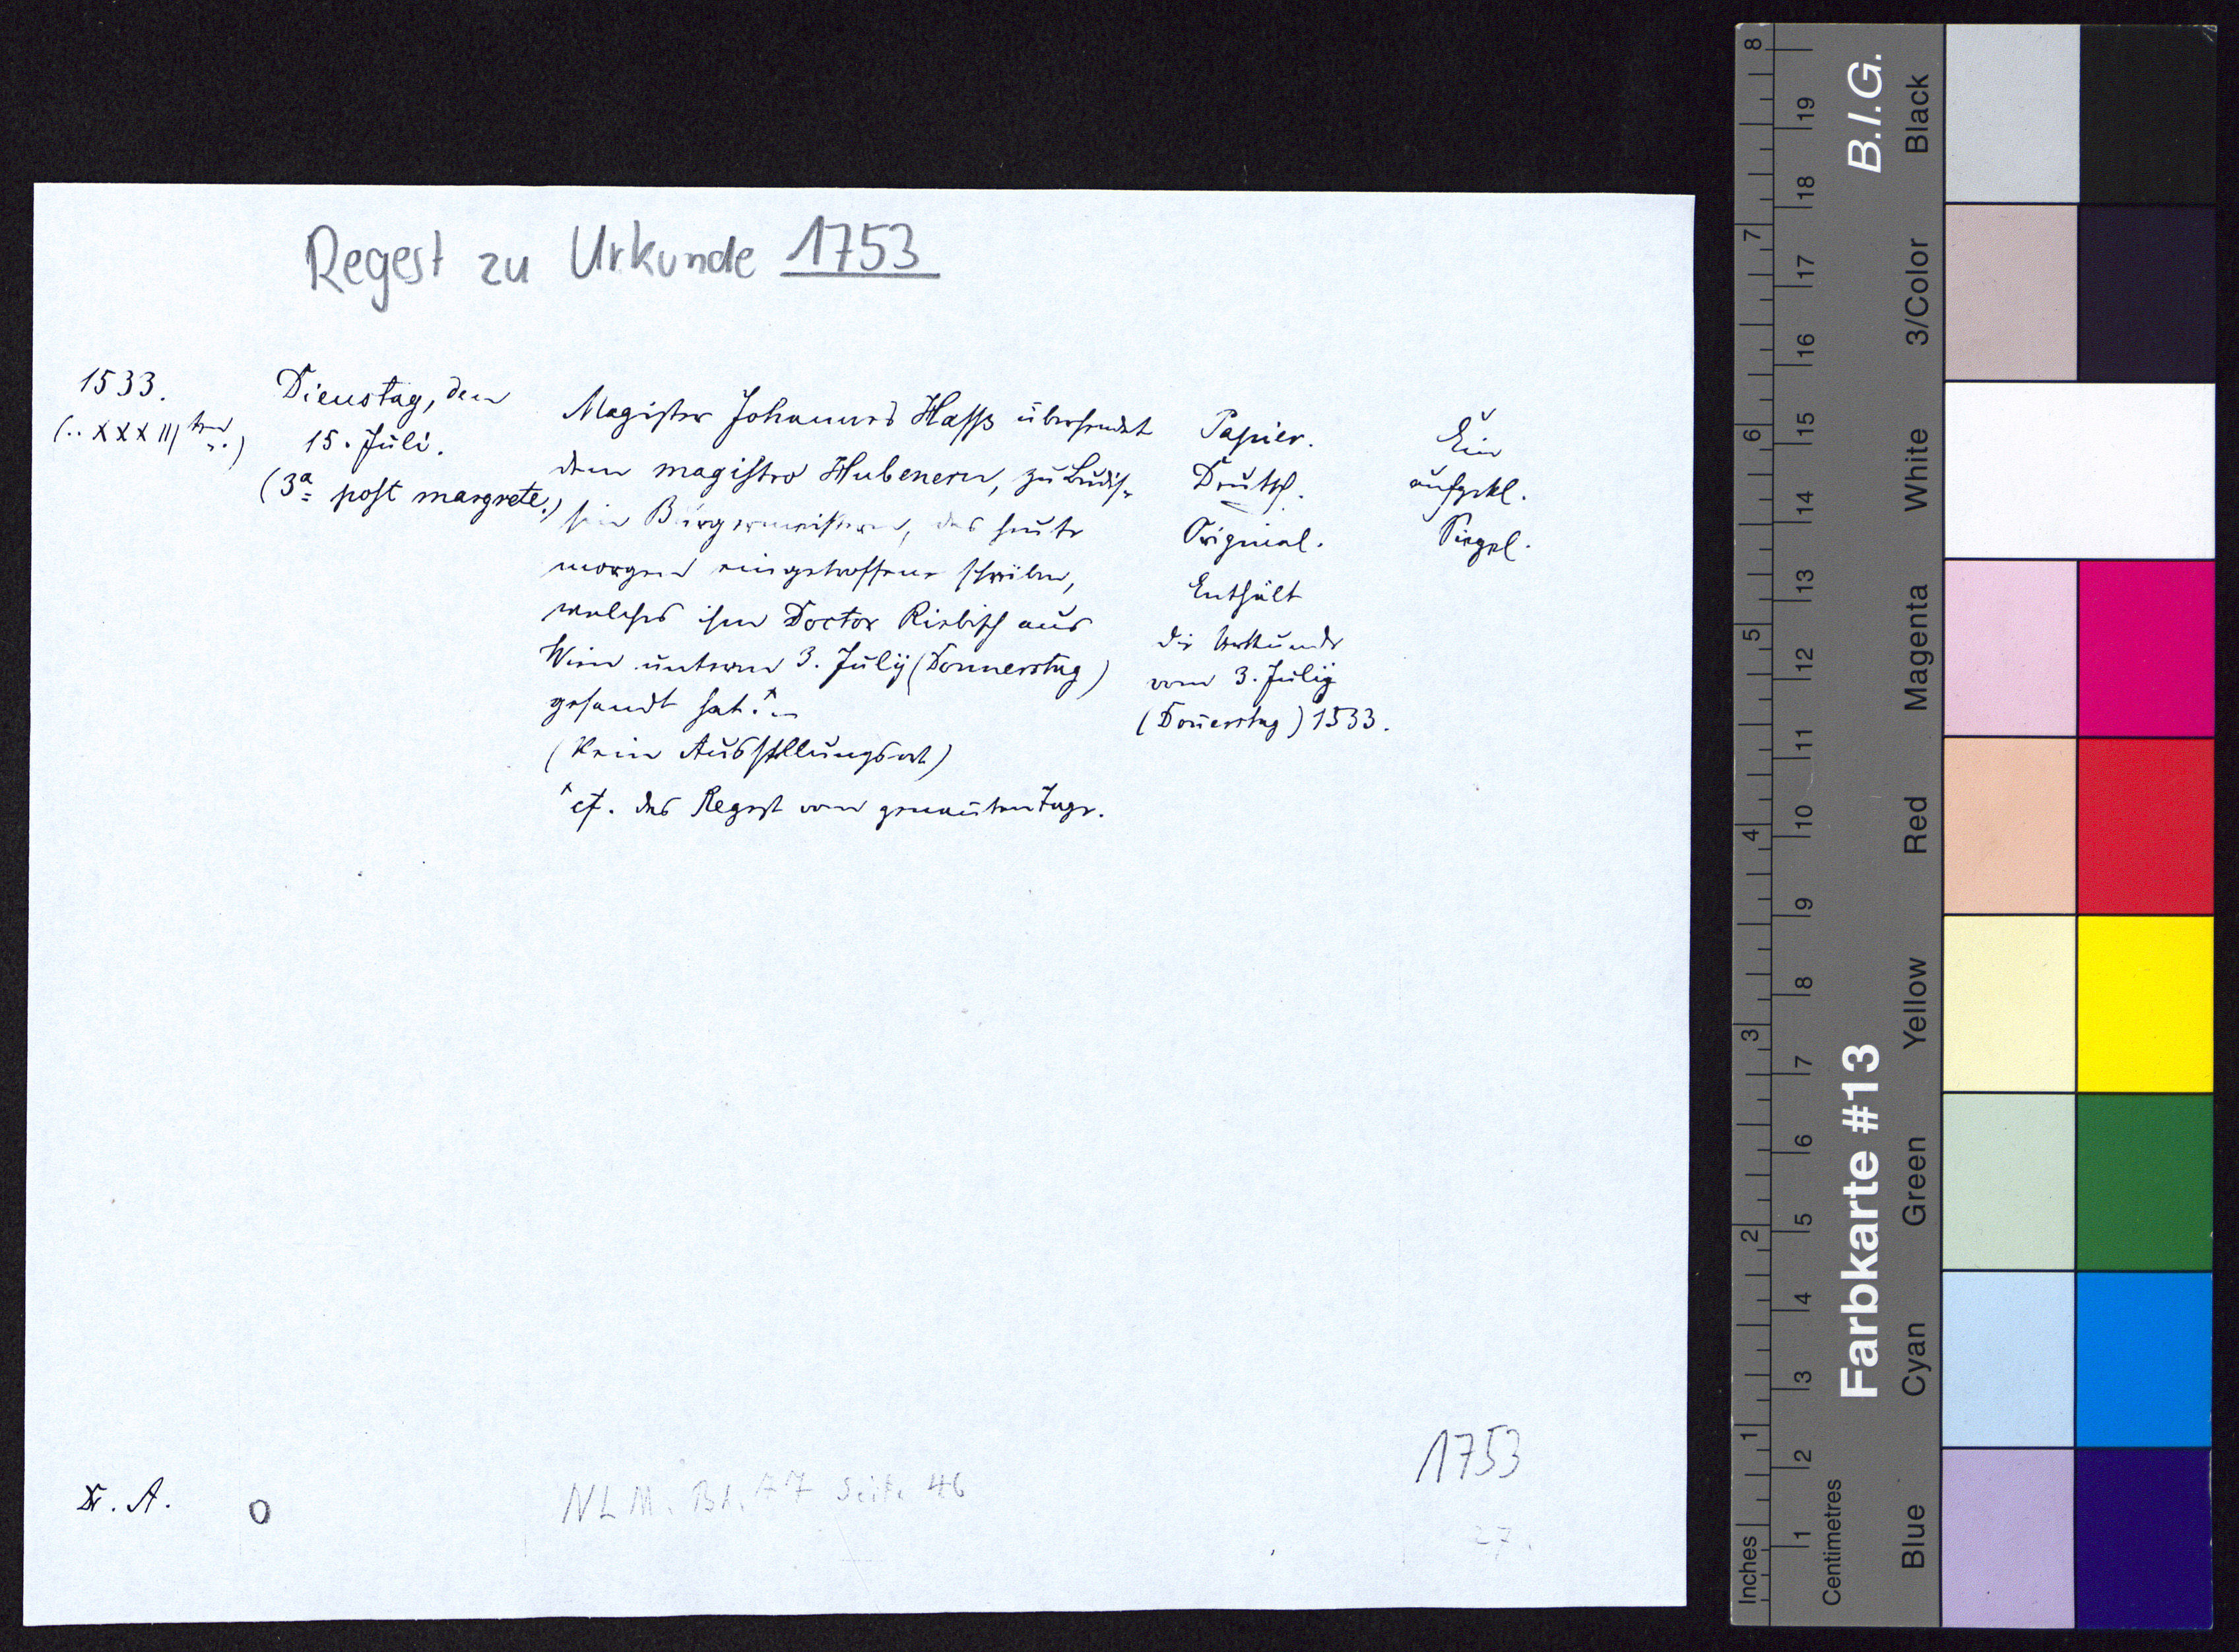 Regest zu Urkunde 1753
1533.
(.. XXXIII ten ..)
Dienstag, den
15. Juli.
(3a post margrete.)
Magister Johannes Hasse übersendet
dem magistro Hubenern, zu Budis-
sin Bürgermeistern, das heute
morgen eingetroffene schreiben,
welches ihm Doctor Ribisch aus
Wien unterm 3. Julij (Donnerstag)
gesandt hat. x
(Kein Ausstellungsort)
x cf. das Regest vom genannten Tage.
Papier.
Deutsch.
Original.
Enthält
die Urkunde
vom 3. Julij
(Donnerstag) 1533.
Ein
aufgekl.
Siegel.
1753
27.
A.
0
NLM. Bd. 77 Seite 46
B.I.G.
Farbkarte #13
Black
3/Color
White
Magenta
Red
Yellow
Green
Cyan
Blue
Centimetres
1 2 3 4 5 6 7 8 9 10 11 12 13 14 15 16 17 18 19
Inches
1 2 3 4 5 6 7 8